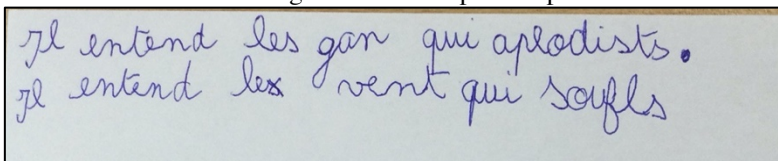 Il entend les gan qui aplodists.
Il entend lex vent qui soufls